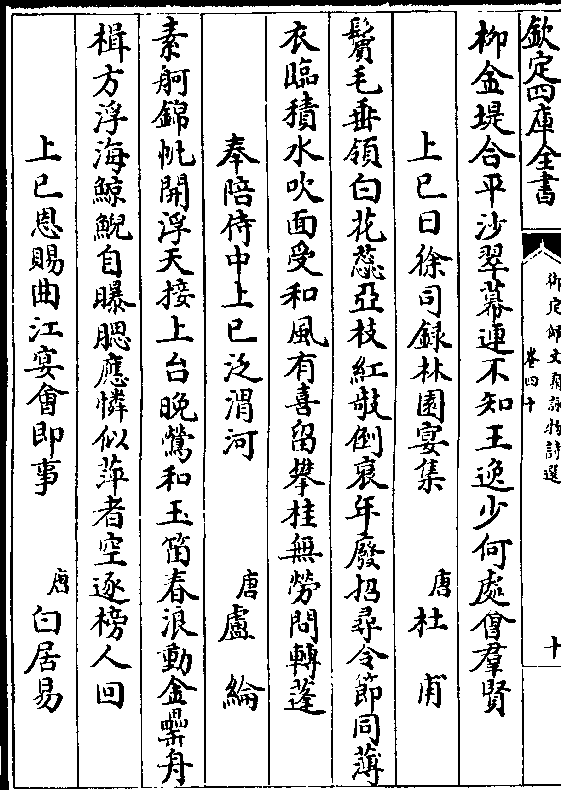 欽定四庫全書
御定佩文齋詠物詩選
卷四十
十
柳金堤合平沙翠幕連不知王逸少何處㑹羣賢
上巳日徐司録林園宴集
唐杜甫
鬢毛垂領白花蘂亞枝紅欹倒衰年廢招尋令節同薄
衣臨積水吹面受和風有喜留攀桂無勞問轉蓬
奉陪侍中上巳泛渭河
唐盧綸
素舸錦帆開浮天接上台晚鶯和玉笛春浪動金罍舟
楫方浮海鯨鯢自曝腮應憐似萍者空逐榜人回
上巳恩賜曲江宴會即事
唐白居易